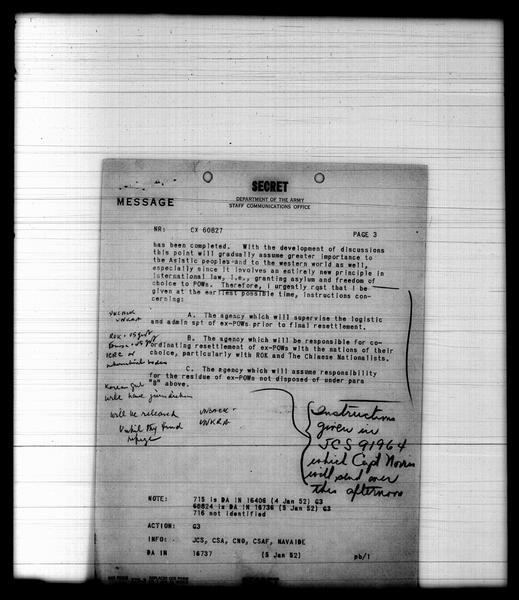 SECRET
DEPARTMENT OF THE ARMY
STAFF COMMUNICATIONS OFFICE
MESSAGE
NR: CX 60827 PAGE 3
has been completed. With the development of discussions
this point will gradually assume greater importance to
the Asistic peoples and to the western world as well,
especially since it involves an entirely new principle in
international law, i.e., granting asylum and freedom of
choice to POWs. Therefore, I urgently rqst that I be
given at the earliest possible time, instructions con-
cerning:
UNCACK
UNKRA
A. The agency which will supervise the logistic
and admin spt of ex-POWs prior to final resettlement.
B. The agency which will be responsible for co-
ordinating resettlement of ex-POWs with the nations of their
choice, particularly with ROK and The Chinese Nationalists.
ICRC or
C. The agency which will assume responsibility
for the residue of ex-POWs not disposed of under para
"B" above.
Korean govt
will have jurisdiction
will be released
Until they find
refuge
UNCACK -
UNKRA
Instructions
given in
JCS 91964
which Capt Norris
will send over
this afternoon
NOTE: 715 is DA IN 16406 (4 Jan 52) G3
60824 is DA IN 16736 (5 Jan 52) G3
716 not identified
ACTION: G3
INFO: JCS, CSA, CNO, CSAF, NAVAIDE
DA IN 16737 (5 Jan 52) pb/1